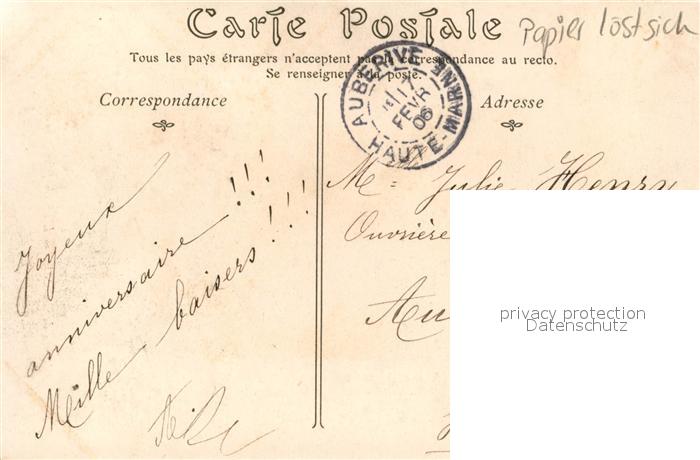 Carte Postale
Papier löst sich
Tous les pays étrangers n'acceptent pas la correspondance au recto.
Se renseigner à la poste.
Correspondance
Adresse
AUBERIVE
17
FEVR
06
HAUTE-MARNE
Joyeux
anniversaire !!!
Mille baisers !!!
M= Julie Henry
Ouvrière
Au
privacy protection
Datenschutz